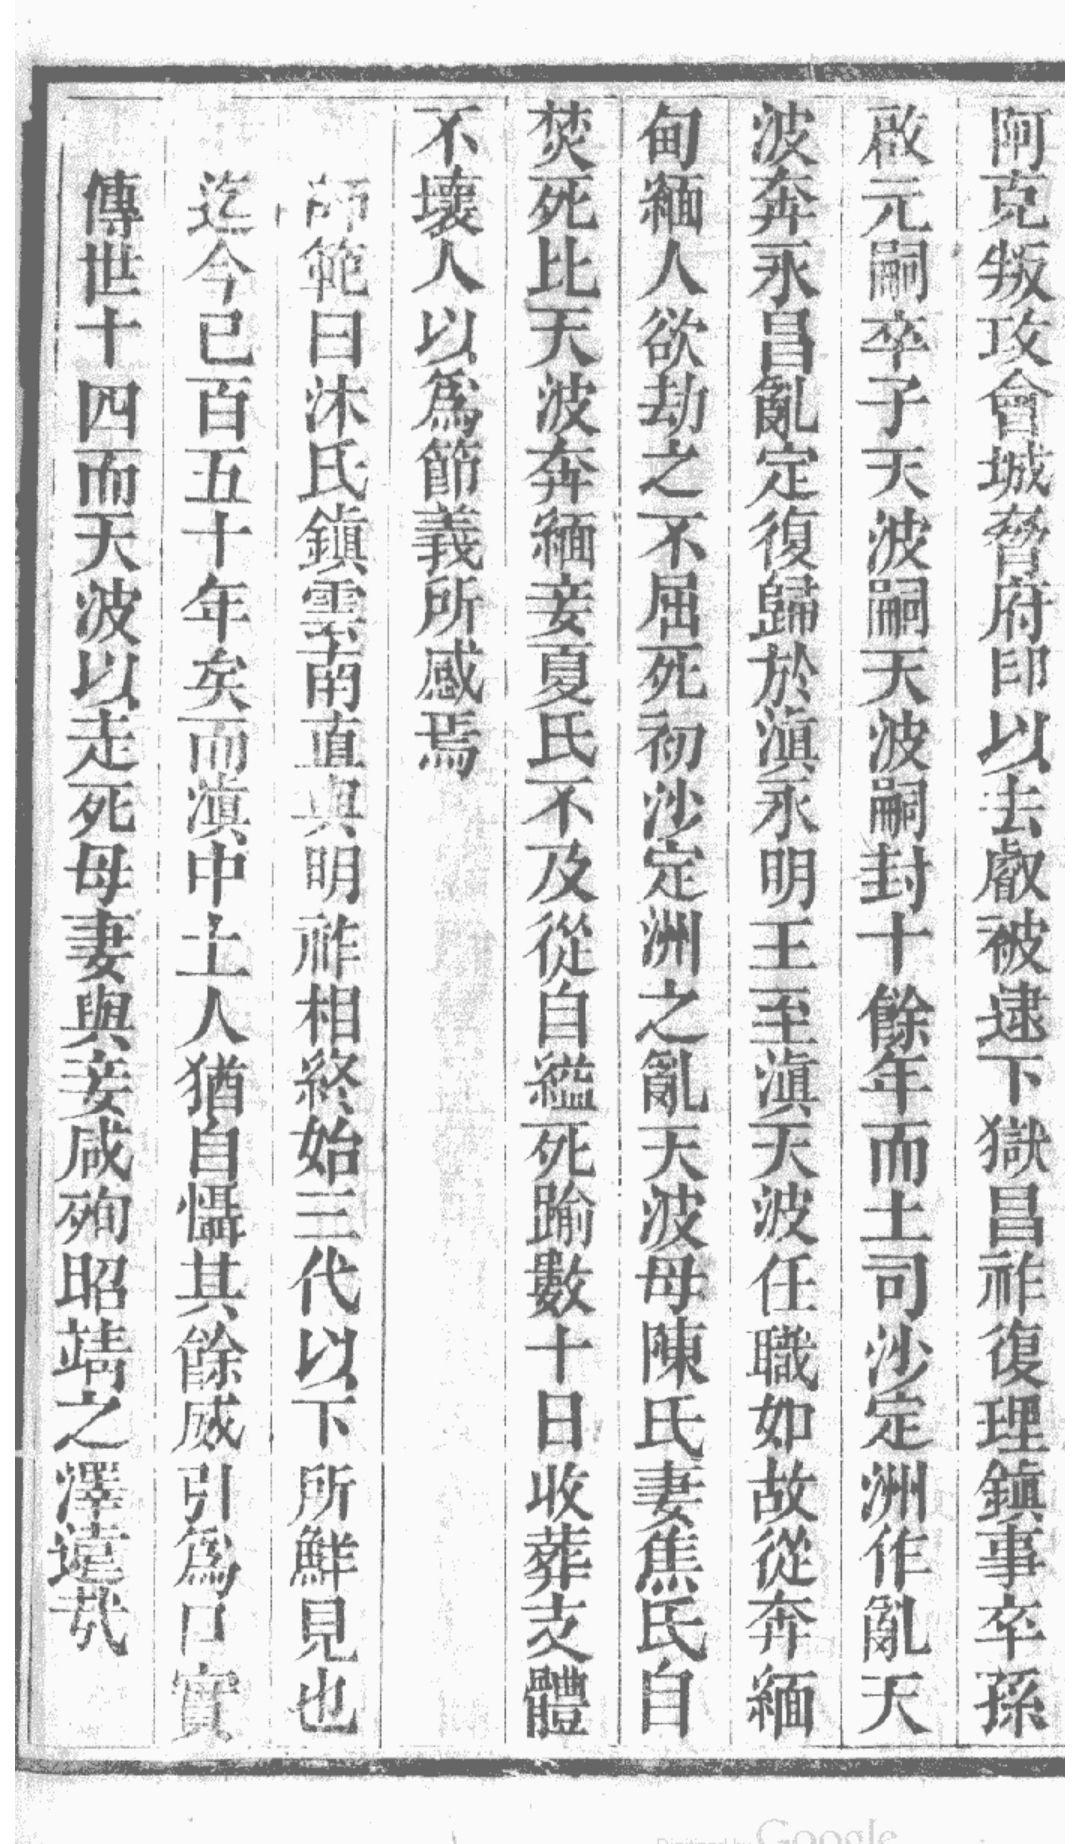 阿克叛攻會城脅府印以去叡被逮下獄昌祚復理鎮事卒孫
啟元嗣卒子天波嗣天波嗣封十餘年而土司沙定洲作亂天
波奔永昌亂定復歸於滇永明王至滇天波任職如故從奔緬
甸緬人欲劫之不屈死初沙定洲之亂天波母陳氏妻焦氏自
焚死比天波奔緬妾夏氏不及從自縊死踰數十日收葬支體
不壞人以爲節義所感焉
師範曰沐氏鎮雲南直與明祚相終始三代以下所鮮見也
迄今已百五十年矣而滇中土人猶自懾其餘威引爲口實
傳世十四而天波以走死母妻與妾咸殉昭靖之澤遠哉
Google